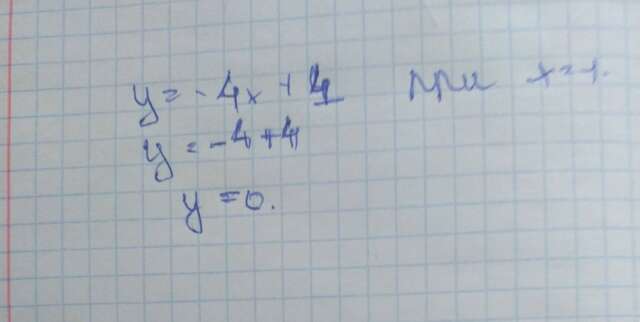 y = -4x + 4 при x = 1.
y = -4 + 4
y = 0.